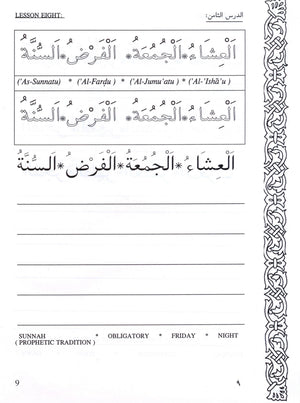 LESSON EIGHT: الدرس الثامن:
اَلْعِشَاءُ * اَلْجُمُعَةُ * اَلْفَرْضُ * اَلسُّنَّةُ
('As-Sunnatu) * ('Al-Fardu) * ('Al-Jumu'atu) * ('Al-'Ishā'u)
اَلْعِشَاءُ * اَلْجُمُعَةُ * اَلْفَرْضُ * اَلسُّنَّةُ
اَلْعِشَاءُ * اَلْجُمُعَةُ * اَلْفَرْضُ * اَلسُّنَّةُ
SUNNAH * OBLIGATORY * FRIDAY * NIGHT
( PROPHETIC TRADITION )
9 ٩